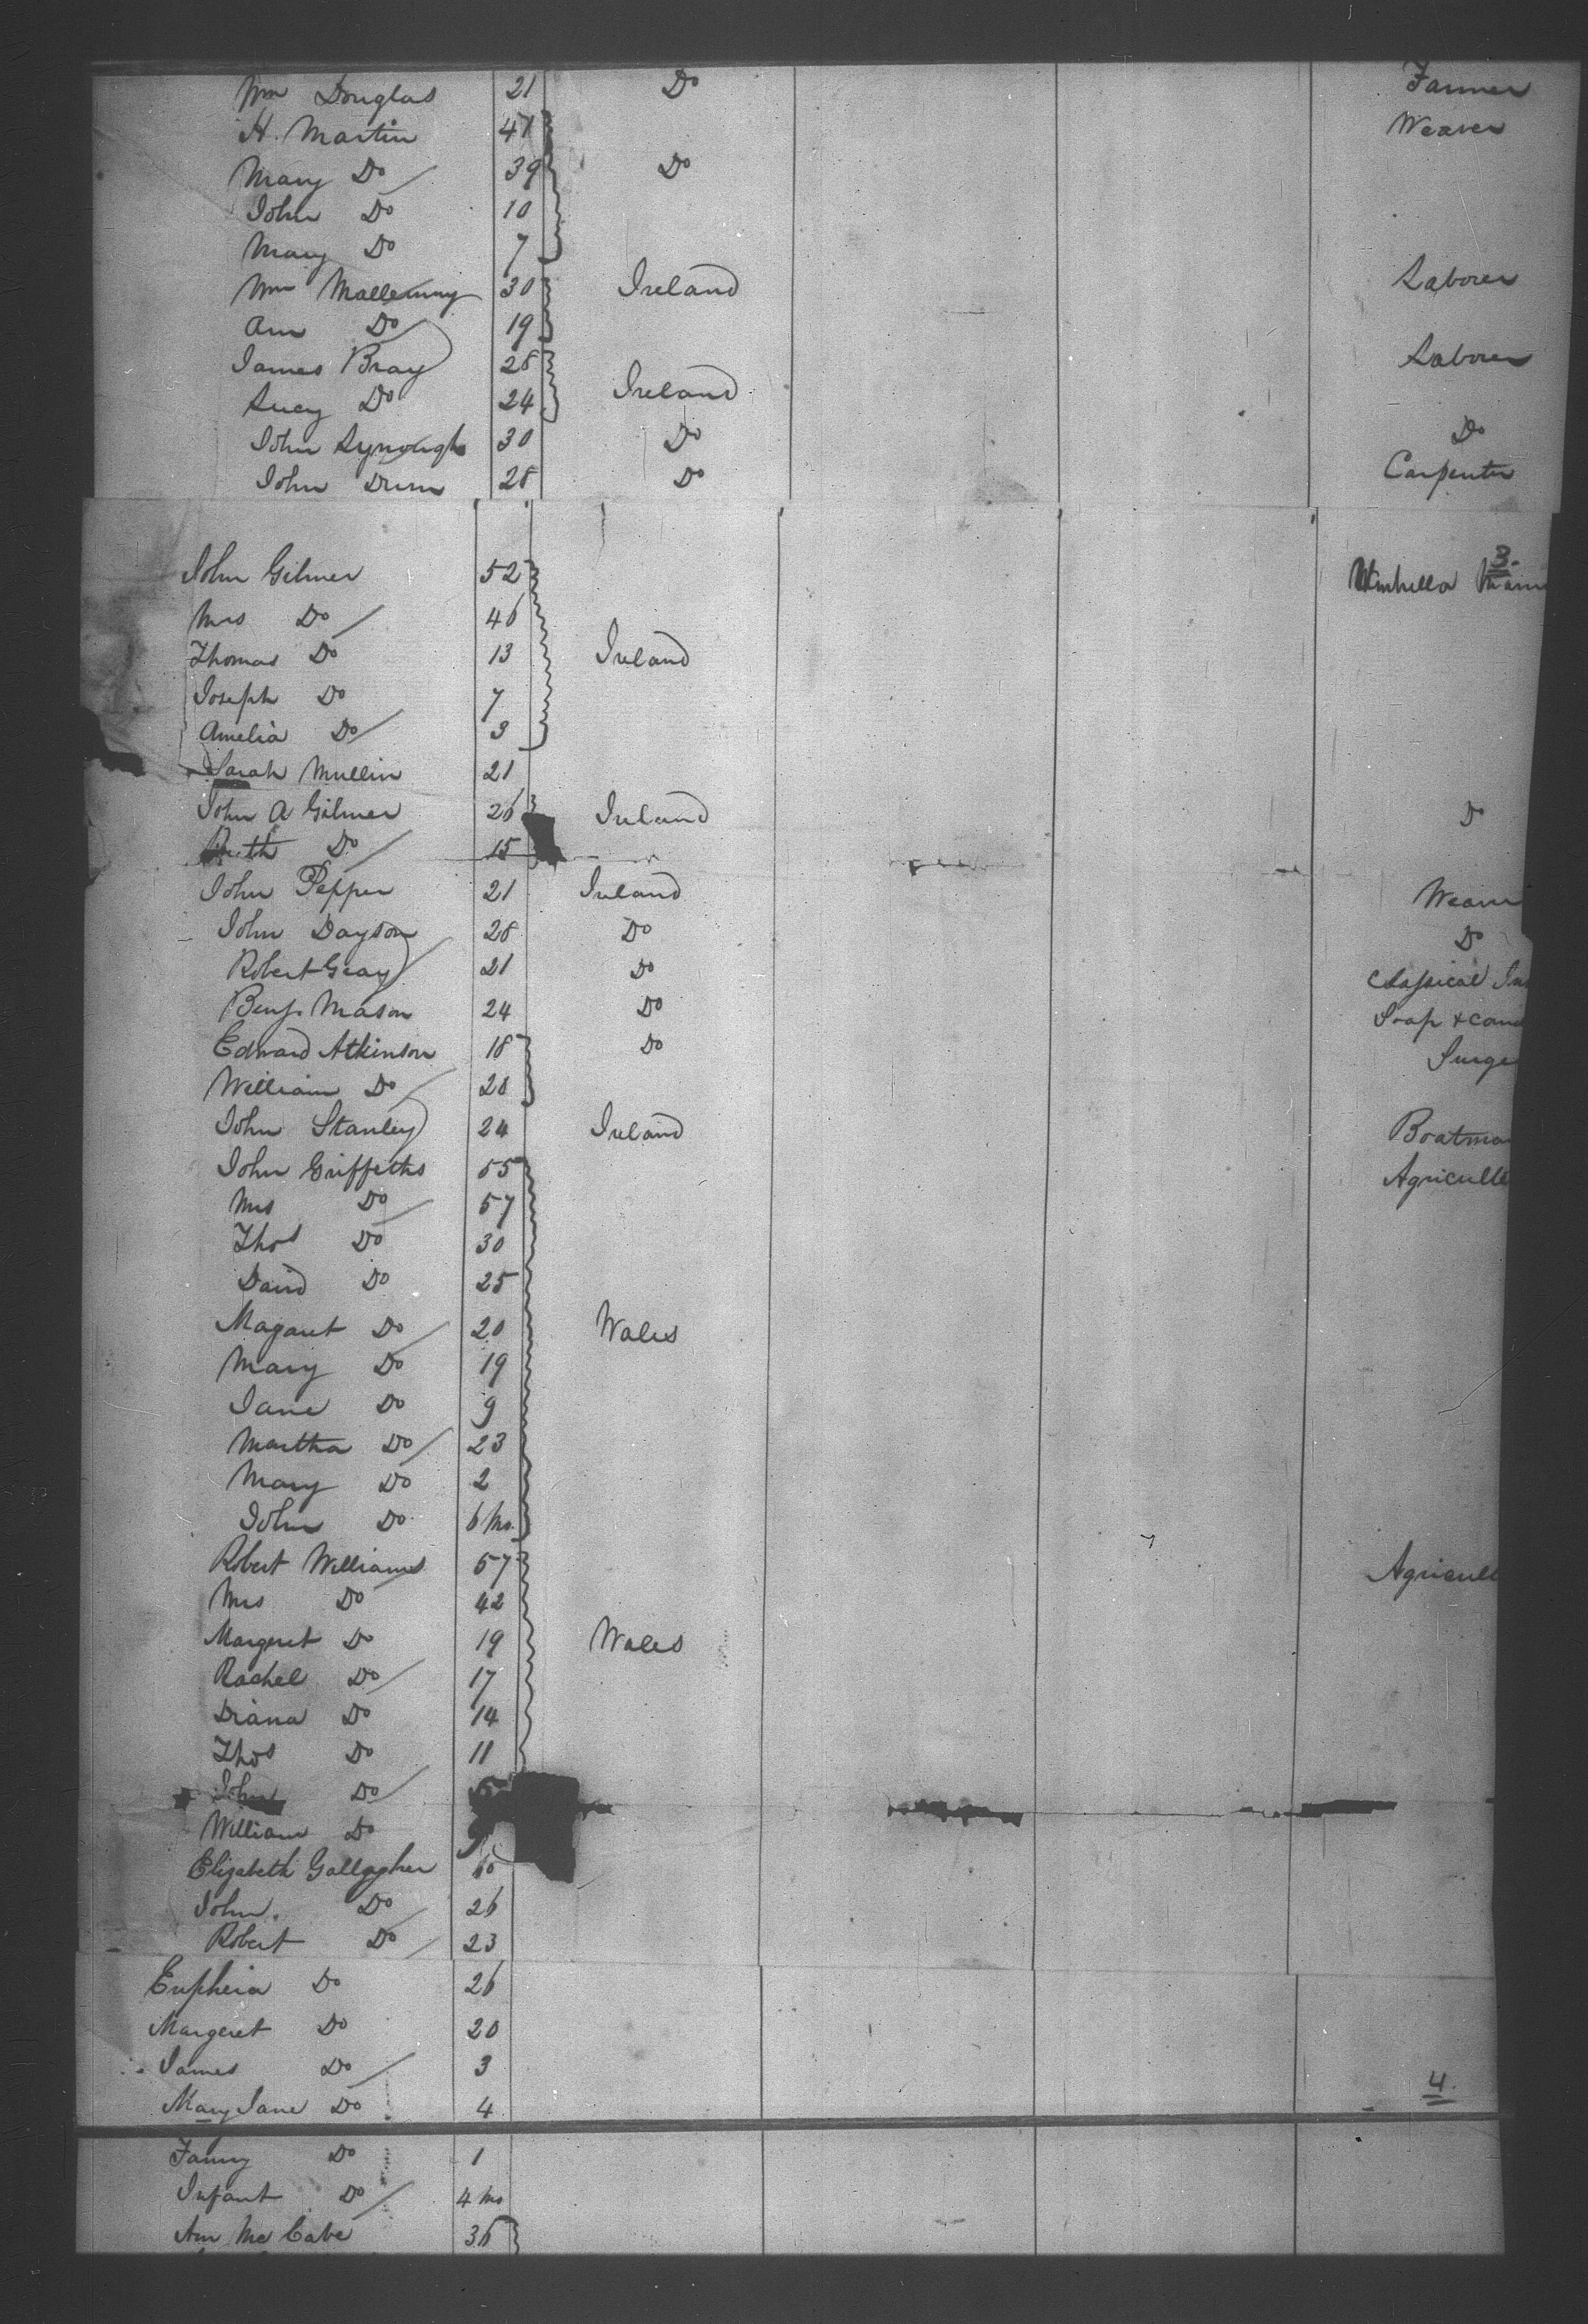 Wm Douglas 21 Do Farmer
H. Martin 41 Weaver
Mary Do 39 Do
John Do 10
Mary Do 7
Wm 30 Ireland Laborer
Ann Do 19
James Bray 28 Laborer
Lucy Do 24 Ireland
John 30 Do Do
John Dunn 28 Do Carpenter
3.
John Gilmer 52 Umbrella Manu
Mrs Do 46
Thomas Do 13 Ireland
Joseph Do 7
Amelia Do 3
Sarah Mullin 21
John A Gilmer 26 Ireland Do
Ruth Do 15
John Pepper 21 Ireland Weaver
John Dayson 28 Do Do
Robert Gray 21 Do Classical Ins
Benj. Mason 24 Do Soap & cand
Edward Atkinson 18 Do Surge
William Do 28
John Stanley 24 Ireland Boatma
John Griffeths 55 Agricult
Mrs Do 57
Thos Do 30
David Do 25
Magaret Do 20 Wales
Mary Do 19
Jane Do 9
Martha Do 23
Mary Do 2
John Do 6 Mo.
Robert Williams 57 Agricult
Mrs Do 42
Margeret Do 19 Wales
Rachel Do 17
Diana Do 14
Thos Do 11
John Do
William Do
Elizabeth Gallagher 60
John. Do 26
Robert Do 23
Eupheia Do 26
Margeret Do 20
James Do 3
4.
Mary Jane Do 4
Fanny Do 1
Infant Do 4 mo
Ann Mc Cabe 36